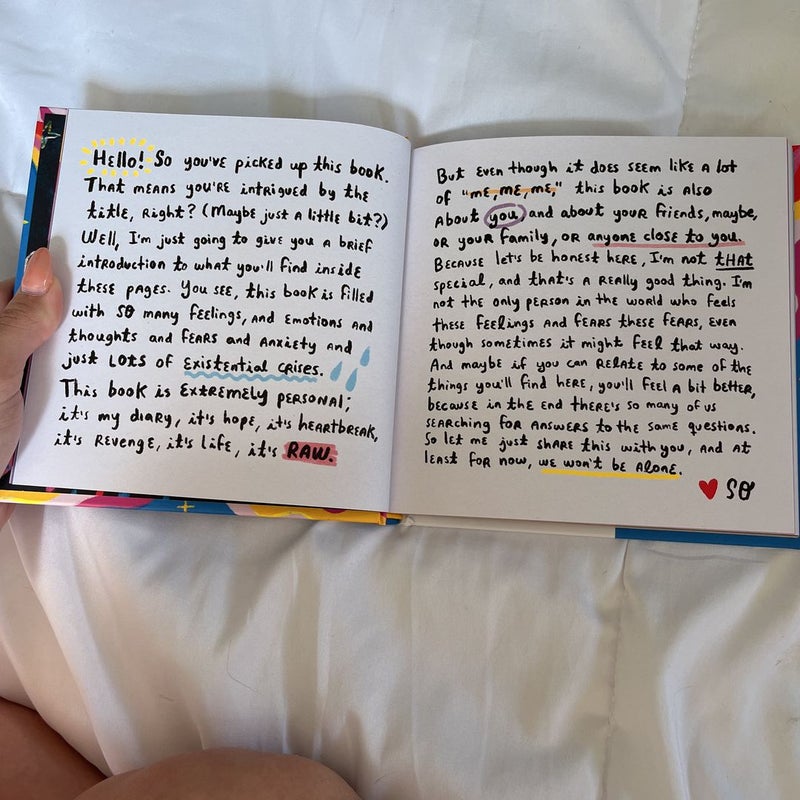 Hello! So you've picked up this book.
That means you're intrigued by the
title, right? (Maybe just a little bit?)
Well, I'm just going to give you a brief
introduction to what you'll find inside
these pages. You see, this book is filled
with so many feelings, and emotions and
thoughts and fears and anxiety and
just lots of existential crises.
This book is extremely personal;
it's my diary, it's hope, it's heartbreak,
it's revenge, it's life, it's RAW.
But even though it does seem like a lot
of "me, me, me," this book is also
about you and about your friends, maybe,
or your family, or anyone close to you.
Because let's be honest here, I'm not THAT
special, and that's a really good thing. I'm
not the only person in the world who feels
these feelings and fears these fears, even
though sometimes it might feel that way.
And maybe if you can relate to some of the
things you'll find here, you'll feel a bit better,
because in the end there's so many of us
searching for answers to the same questions.
So let me just share this with you, and at
least for now, we won't be alone.
SO